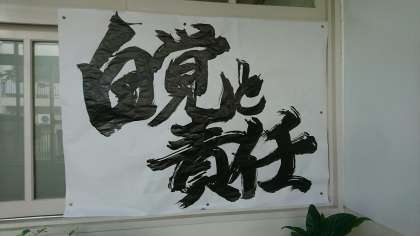 自覚と
責任